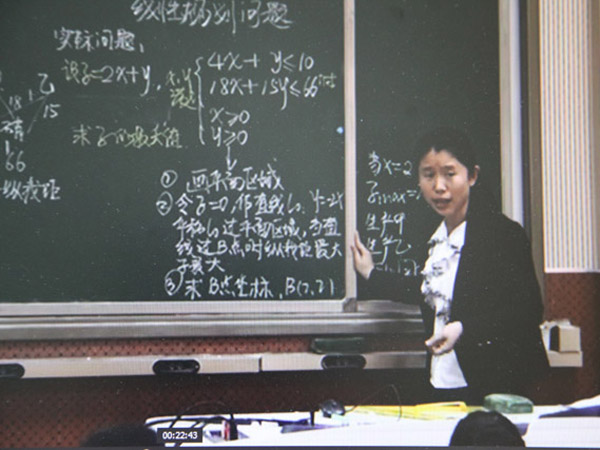 线性规划问题
实际问题,
设z=2x+y, x,y满足
4x+y≤10
18x+15y≤66
x≥0
y≥0
求z的最大值
乙
18
15
硝
66
① 画平面区域
② 令z=0,作直线l₀, y=-2x
平移l₀过平面区域,当直
线过B点时纵截距最大
z最大
③ 求B点坐标, B(2,2)
当x=2
zmax=
生产甲
生产乙
00:22:43